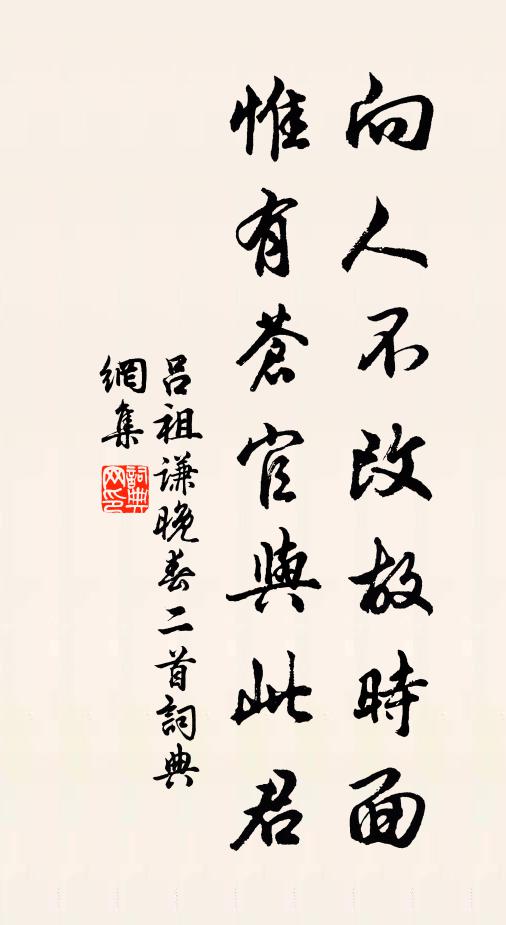 向人不改故時面
惟有蒼官與此君
呂祖謙晚春二首詞典
網集
詞典網印